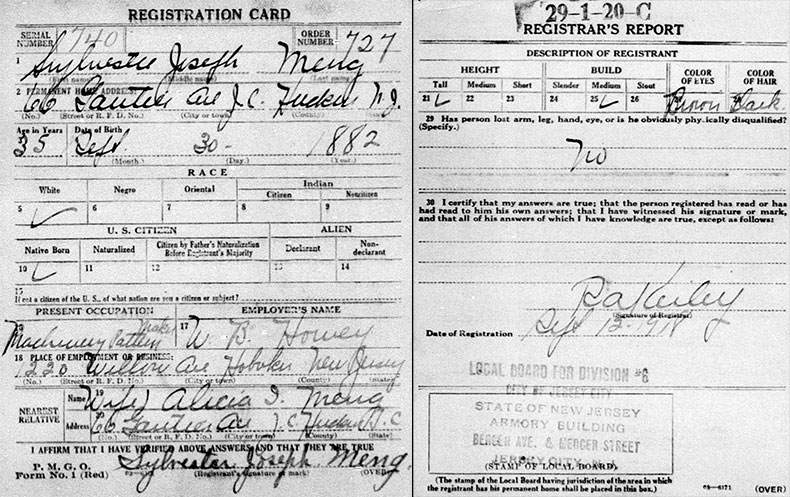 REGISTRATION CARD
SERIAL NUMBER 740 ORDER NUMBER 727
1 Sylvester Joseph Meng
(First name) (Middle name) (Last name)
2 PERMANENT HOME ADDRESS:
66 Gautier Ave J.C. Hudson N.J.
(No.) (Street or R. F. D. No.) (City or town) (County) (State)
Age in Years Date of Birth
35 Sept 30- 1882
(Month.) (Day.) (Year.)
RACE
White Negro Oriental Indian
Citizen Noncitizen
5 6 7 8 9
U. S. CITIZEN ALIEN
Native Born Naturalized Citizen by Father's Naturalization Before Registrant's Majority Declarant Non-declarant
10 11 12 13 14
15
If not a citizen of the U. S., of what nation are you a citizen or subject?
PRESENT OCCUPATION EMPLOYER'S NAME
16 Machinery Pattern Maker 17 W. B. Howey
18 PLACE OF EMPLOYMENT OR BUSINESS:
1220 Willow Ave Hoboken New Jersey
(No.) (Street or R. F. D. No.) (City or town) (County) (State)
NEAREST RELATIVE
Name 19 (Wife) Alicia I. Meng
Address 20 66 Gautier Ave J.C. Hudson
(No.) (Street or R. F. D. No.) (City or town) (County) (State)
I AFFIRM THAT I HAVE VERIFIED ABOVE ANSWERS AND THAT THEY ARE TRUE
P. M. G. O.
Form No. 1 (Red) Sylvester Joseph Meng.
(Registrant's signature or mark) (OVER)
29-1-20-C
REGISTRAR'S REPORT
DESCRIPTION OF REGISTRANT
HEIGHT BUILD COLOR OF EYES COLOR OF HAIR
Tall Medium Short Slender Medium Stout
21 22 23 24 25 26 Brown Black
29 Has person lost arm, leg, hand, eye, or is he obviously physically disqualified?
(Specify.)
No
30 I certify that my answers are true; that the person registered has read or has
had read to him his own answers; that I have witnessed his signature or mark,
and that all of his answers of which I have knowledge are true, except as follows:
(Signature of Registrar)
Date of Registration Sept 12-1918
LOCAL BOARD FOR DIVISION #6
CITY OF JERSEY CITY
STATE OF NEW JERSEY
ARMORY BUILDING
BERGEN AVE. & MERCER STREET
JERSEY CITY
(STAMP OF LOCAL BOARD)
(The stamp of the Local Board having jurisdiction of the area in which
the registrant has his permanent home shall be placed in this box.)
03-6171 (OVER)